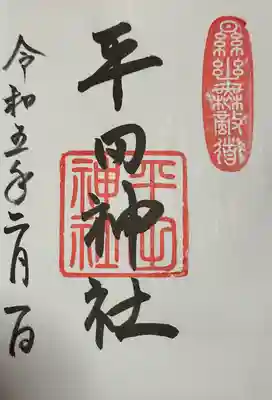 平田神社
平田
神社
令和五年二月一日